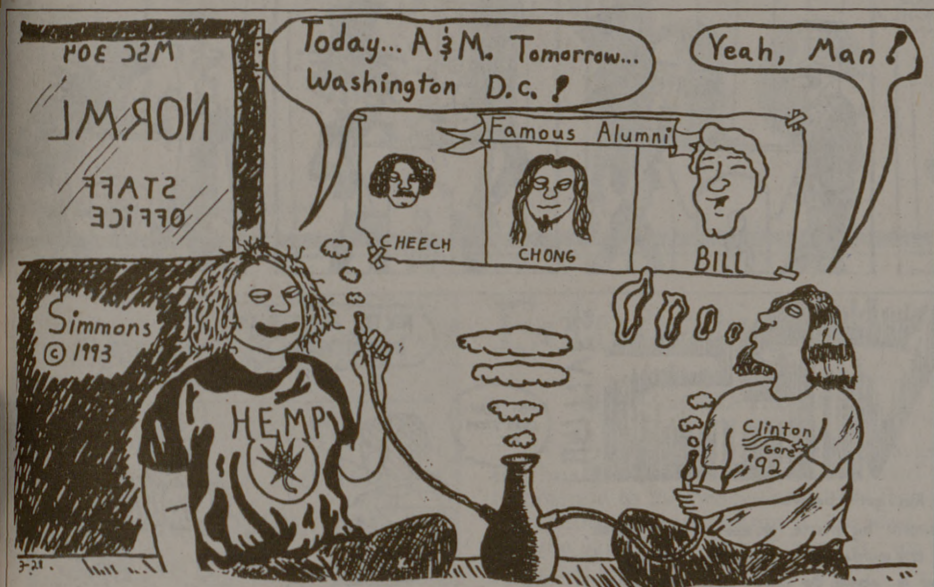 MSC 304
NORML
STAFF
OFFICE
Today... A & M. Tomorrow...
Washington D.C. !
Yeah, Man !
Famous Alumni
CHEECH
CHONG
BILL
Simmons
© 1993
HEMP
Clinton
Gore
'92